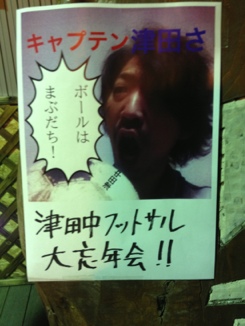 キャプテン津田さ
ボールは
まぶだち！
津田中
津田中フットサル
大忘年会!!